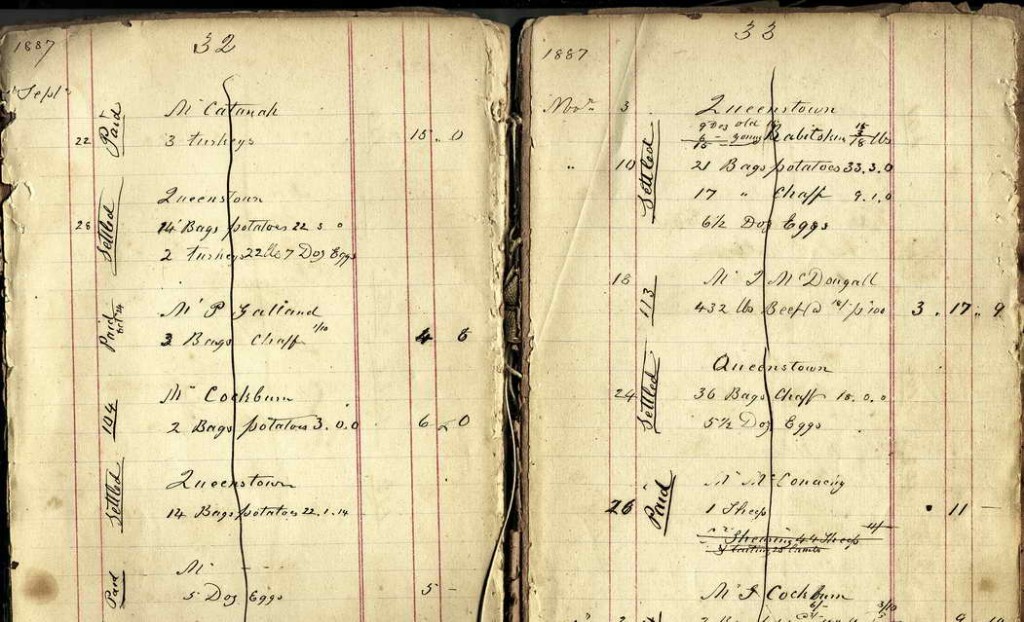 1887 32
Sept
Mr Catanah
22 Paid 3 turkeys 15 .. 0
Queenstown
28 Settled 14 Bags potatoes 22 5 0
2 turkeys 22 lbs 7 Doz Eggs
Mr P Galland
Paid Oct 24 3 Bags Chaff 1/10 4 6
Mr Cockburn
144 2 Bags potatoes 3.0.0 6 .. 0
Queenstown
Settled 14 Bags potatoes 22.1.14
Mr
Paid 5 Doz Eggs 5 -
1887 33
Novr 3 Queenstown
9 Doz old
young Rabitskin lbs
15
" 10 Settled 21 Bags potatoes 33.3.0
17 " Chaff 9.1.0
6½ Doz Eggs
18 Mr J McDougall
113 432 lbs Beef @ 18/- p 100 3 . 17 .. 9
Queenstown
24 Settled 36 Bags Chaff 18.0.0
5½ Doz Eggs
Mr
26 Paid 1 Sheep . 11 -
Shearing 44 Sheep 11/-
tailing 25 Lambs
Mr J Cockburn
6/- 3/10